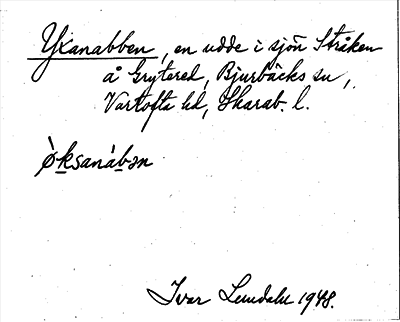 Yxanabben, en udde i sjön Stråken
å Gryterel, Bjurbäcks sn,
Vartofta hd, Skarab. l.
ò̀ksanáben
Ivar Lundahl 1948.